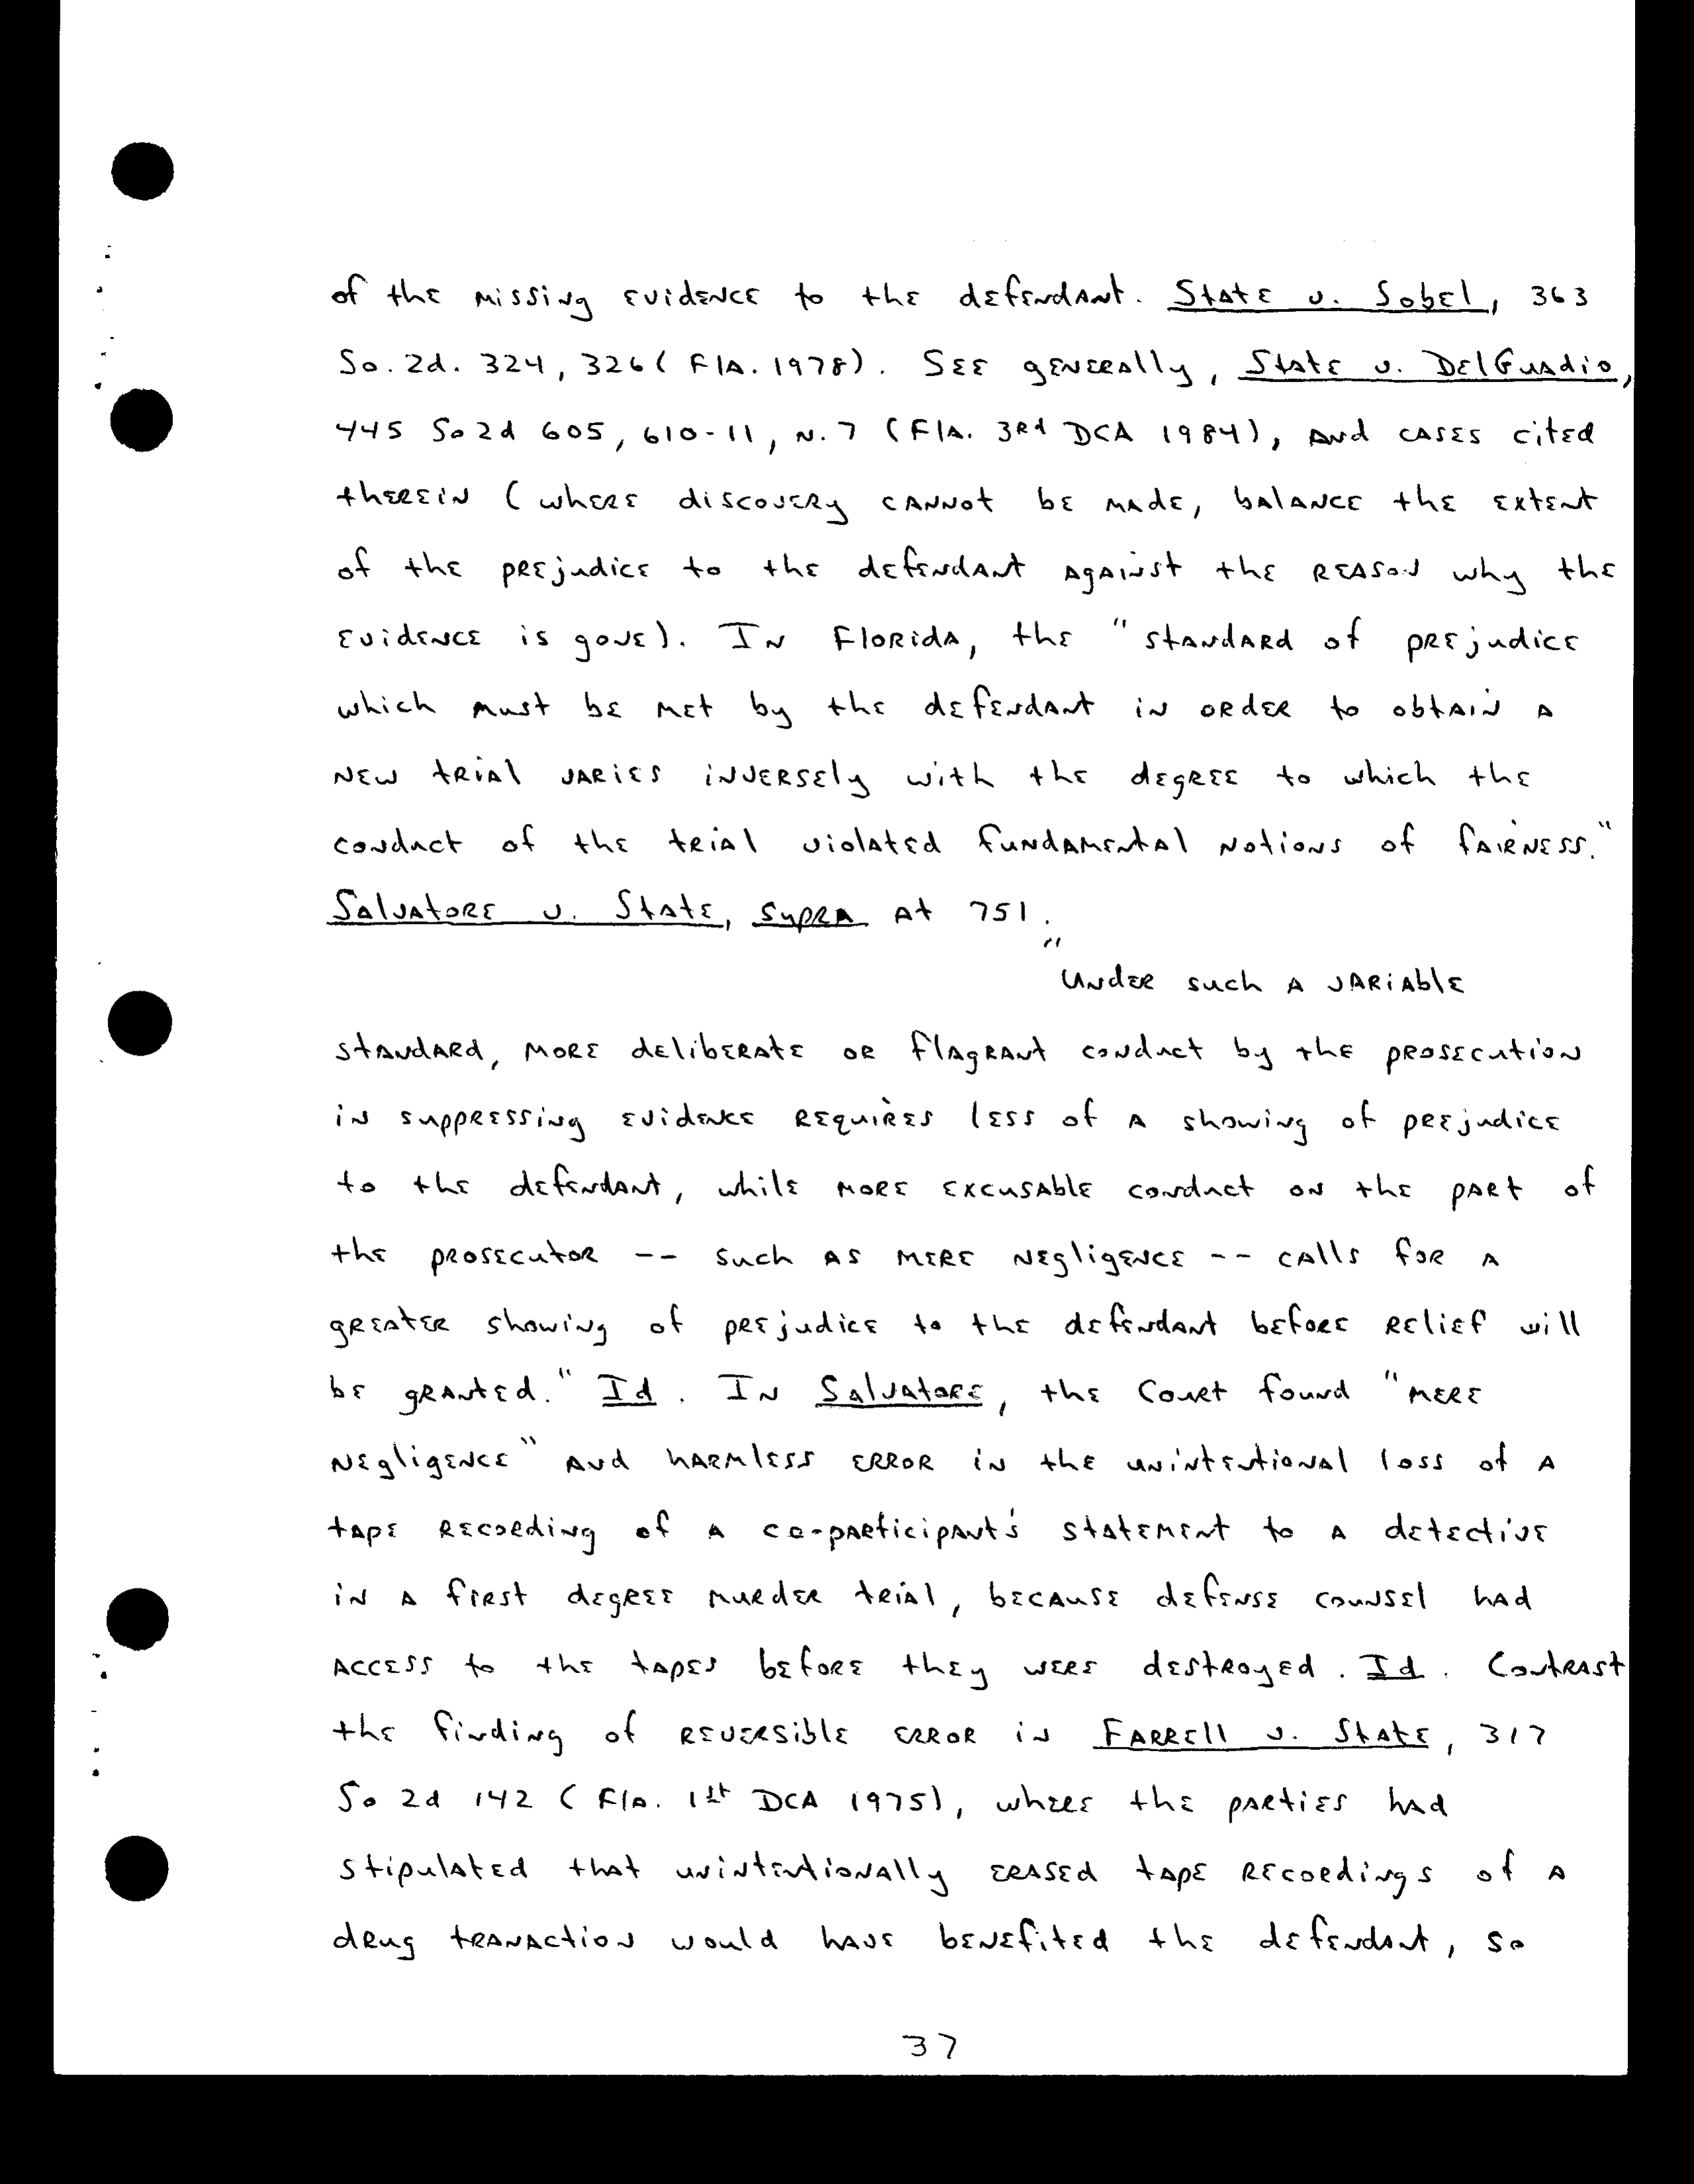 of the missing evidence to the defendant. State v. Sobel, 363
So. 2d. 324, 326 (Fla. 1978). See generally, State v. DelGuadio,
445 So 2d 605, 610-11, n. 7 (Fla. 3rd DCA 1984), and cases cited
therein (where discovery cannot be made, balance the extent
of the prejudice to the defendant against the reason why the
evidence is gone). In Florida, the "standard of prejudice
which must be met by the defendant in order to obtain a
new trial varies inversely with the degree to which the
conduct of the trial violated fundamental notions of fairness."
Salvatore v. State, supra at 751.
"Under such a variable
standard, more deliberate or flagrant conduct by the prosecution
in suppressing evidence requires less of a showing of prejudice
to the defendant, while more excusable conduct on the part of
the prosecutor -- such as mere negligence -- calls for a
greater showing of prejudice to the defendant before relief will
be granted." Id. In Salvatore, the Court found "mere
negligence" and harmless error in the unintentional loss of a
tape recording of a co-participant's statement to a detective
in a first degree murder trial, because defense counsel had
access to the tapes before they were destroyed. Id. Contrast
the finding of reversible error in Farrell v. State, 317
So 2d 142 (Fla. 1st DCA 1975), where the parties had
stipulated that unintentionally erased tape recordings of a
drug tranaction would have benefited the defendant, so
37